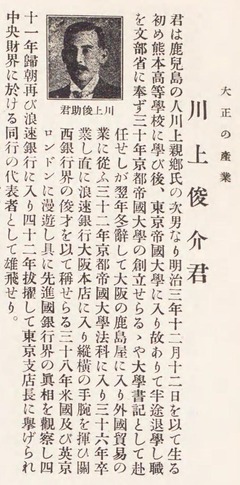 大正の產業
川上俊介君
川上俊助君
君は鹿兒島の人川上親鄕氏の次男なり明治三年十二月十二日を以て生る
初め熊本高等學校に學び後、東京帝國大學に入り故ありて半途退學し職
を文部省に奉ず三十年京都帝國大學の創立せらるゝや大學書記として赴
任せしが翌年冬辭して大阪の鹿島屋に入り外國貿易の
業に從ふ三十二年京都帝國大學法科に入り三十六年卒
業し直に浪速銀行大阪本店に入り縱橫の手腕を揮ひ關
西銀行界の俊才を以て稱せらる三十八年米國及び英京
ロンドンに漫遊し具に先進國銀行界の眞相を觀察し四
十一年歸朝再び浪速銀行に入り四十二年拔擢して東京支店長に擧げられ
中央財界に於ける同行の代表者として雄飛せり。